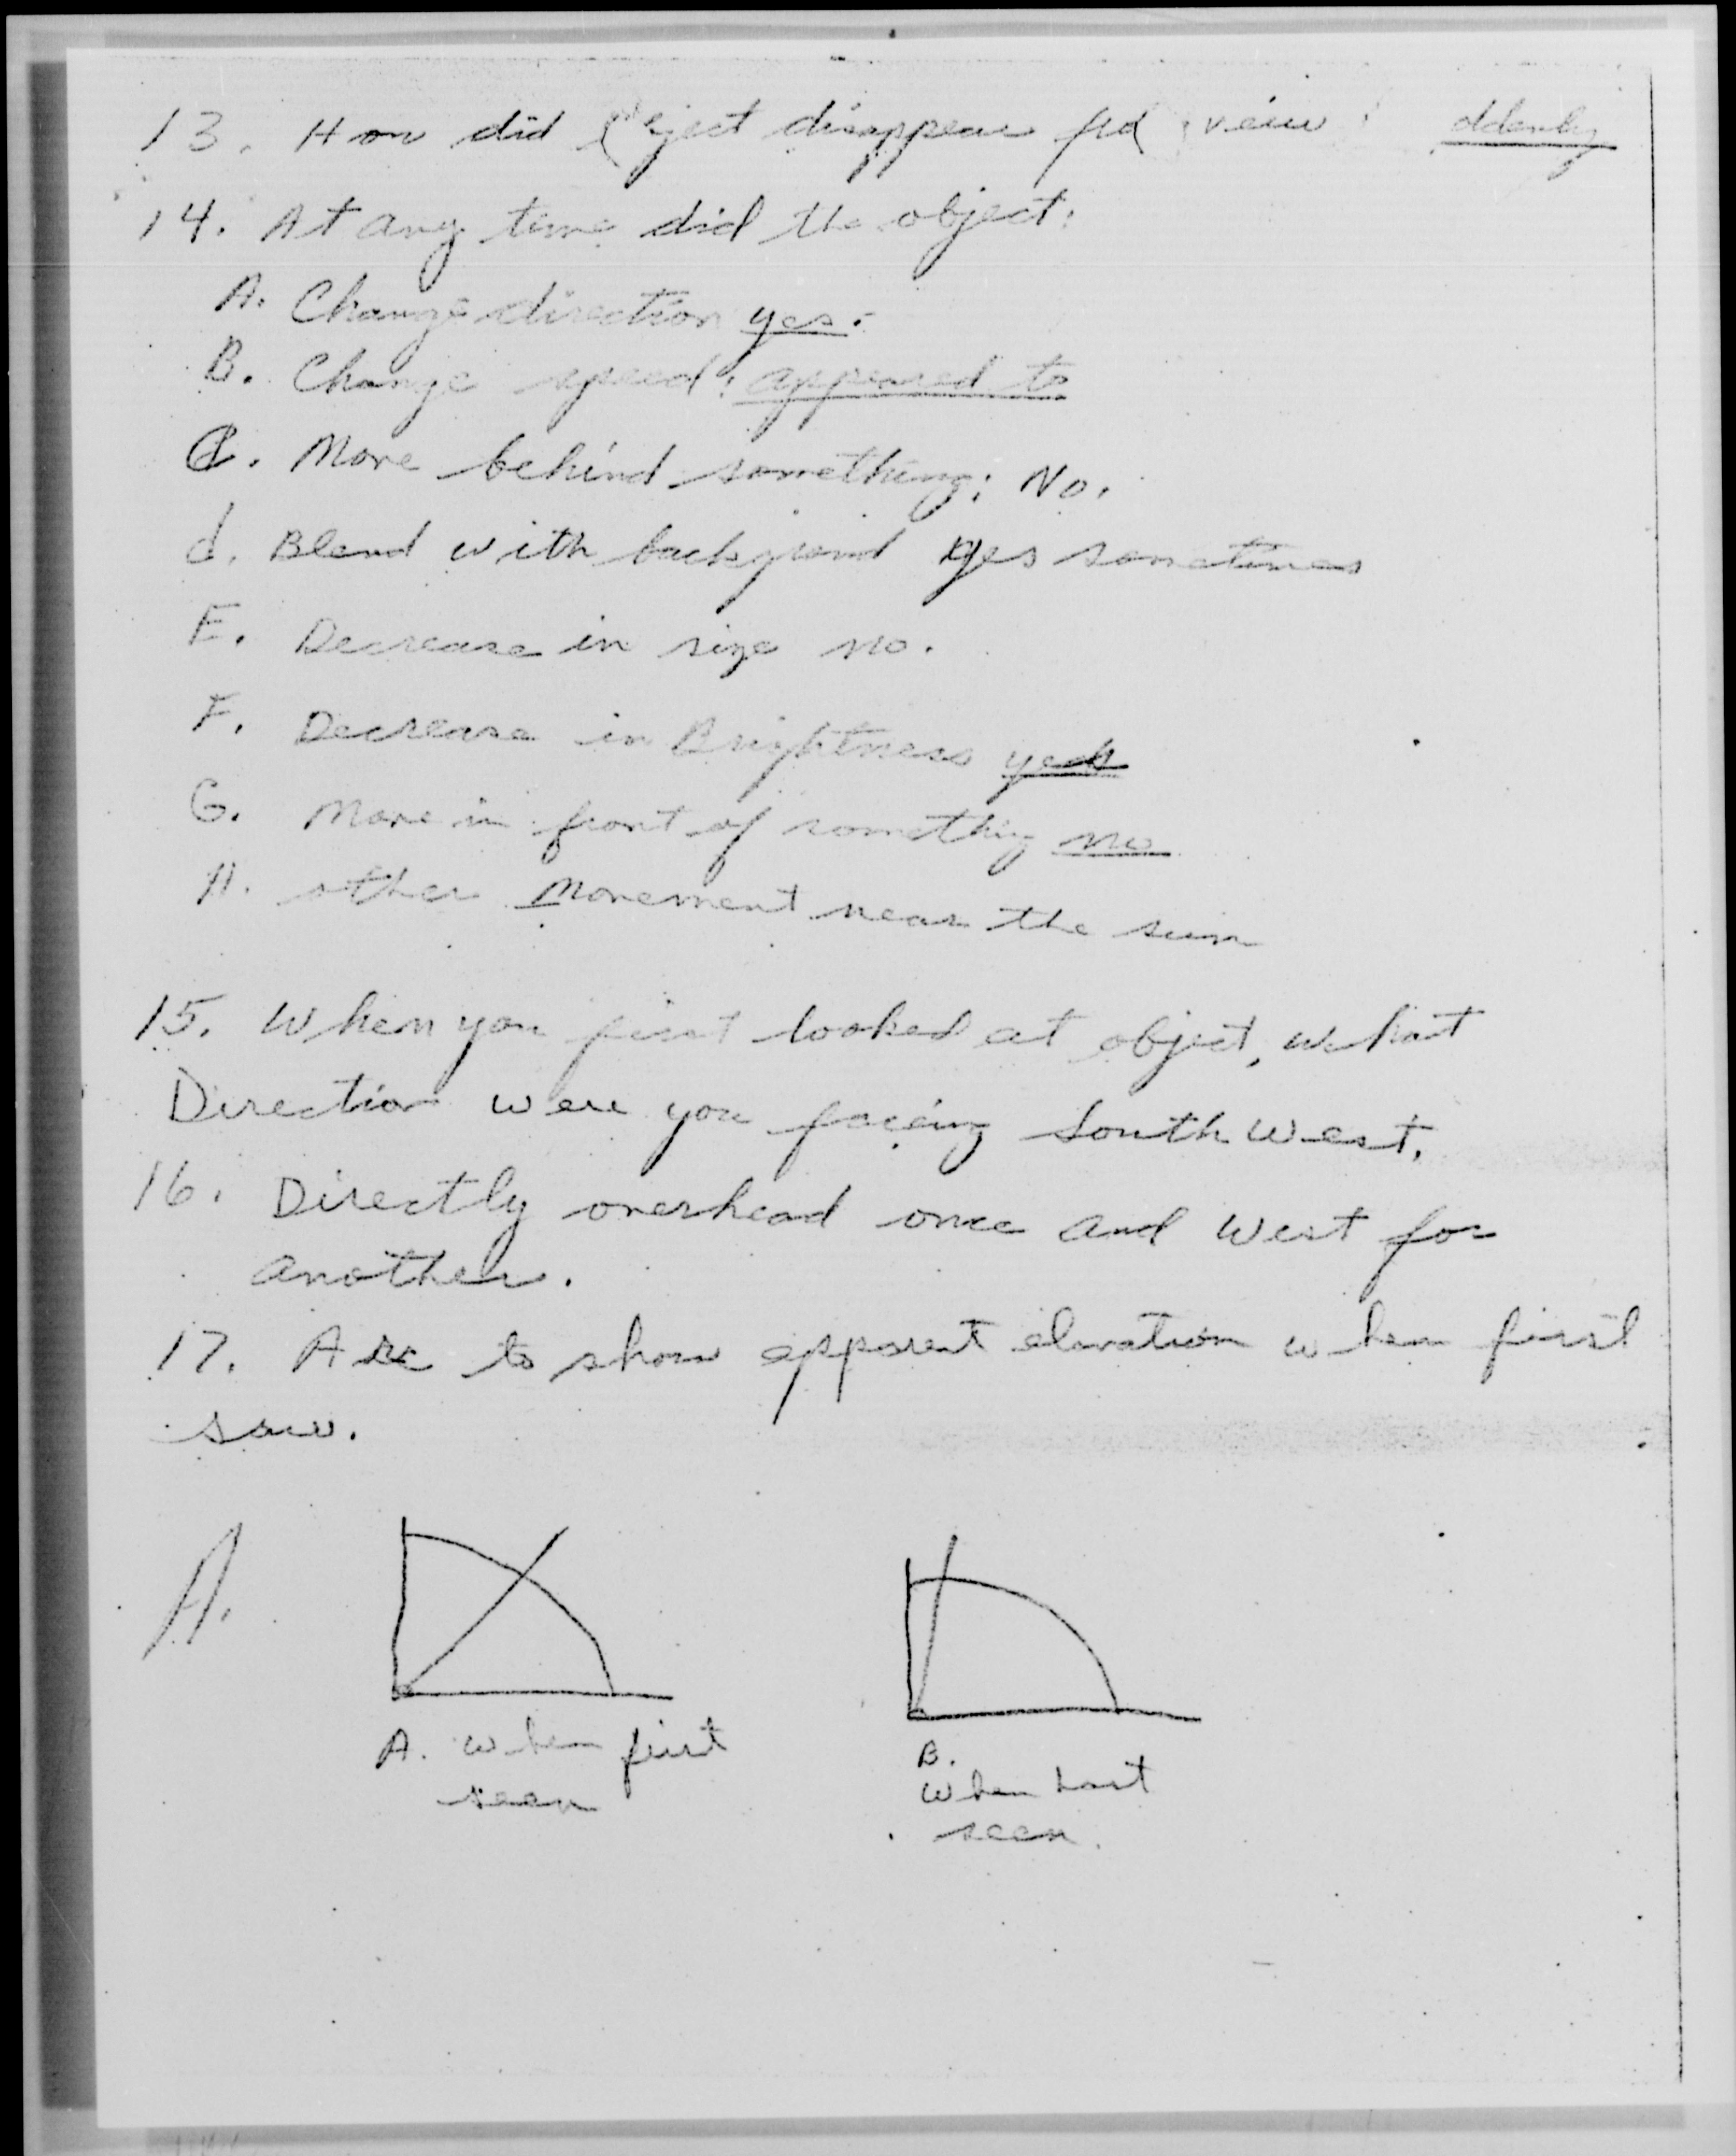 13. How did object disappear from view: suddenly
14. At any time did the object:
A. Change direction yes.
B. Change speed: appeared to
C. Move behind something; No.
d. Blend with background yes sometimes
E. Decrease in size no.
F. Decrease in Brightness yes
G. Move in front of somethig no
H. other Movement near the sun
15. When you first looked at object, what
Direction were you facing South West.
16. Directly overhead once and West for
another.
17. Arc to show apparent elevation when first
saw.
A.
A. When first
seen
B.
When Last
seen.